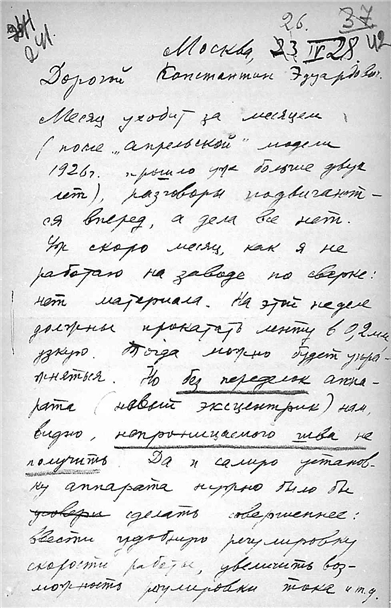 26. 37
241. 42
Москва, 23 IV 28
Дорогой Константин Эдуардович.
Месяц уходит за месяцем
(после „апрельской" модели
1926 г. прошло уж больше двух
лет), разговоры подвигают-
ся вперед, а дела все нет.
Уж скоро месяц, как я не
работаю на заводе по сварке:
нет материала. На этой неделе
должны прокатать ленту в 0,2 мм
узкую. Тогда можно будет упра-
жняться. Но без переделок аппа-
рата (новый эксцентрик) нам,
видно, непроницаемого шва не
получить. Да и самую установ-
ку аппарата нужно было бы
сделать совершеннее:
ввести удобную регулировку
скорости работы, увеличить воз-
можность регулировки тока и т.д.